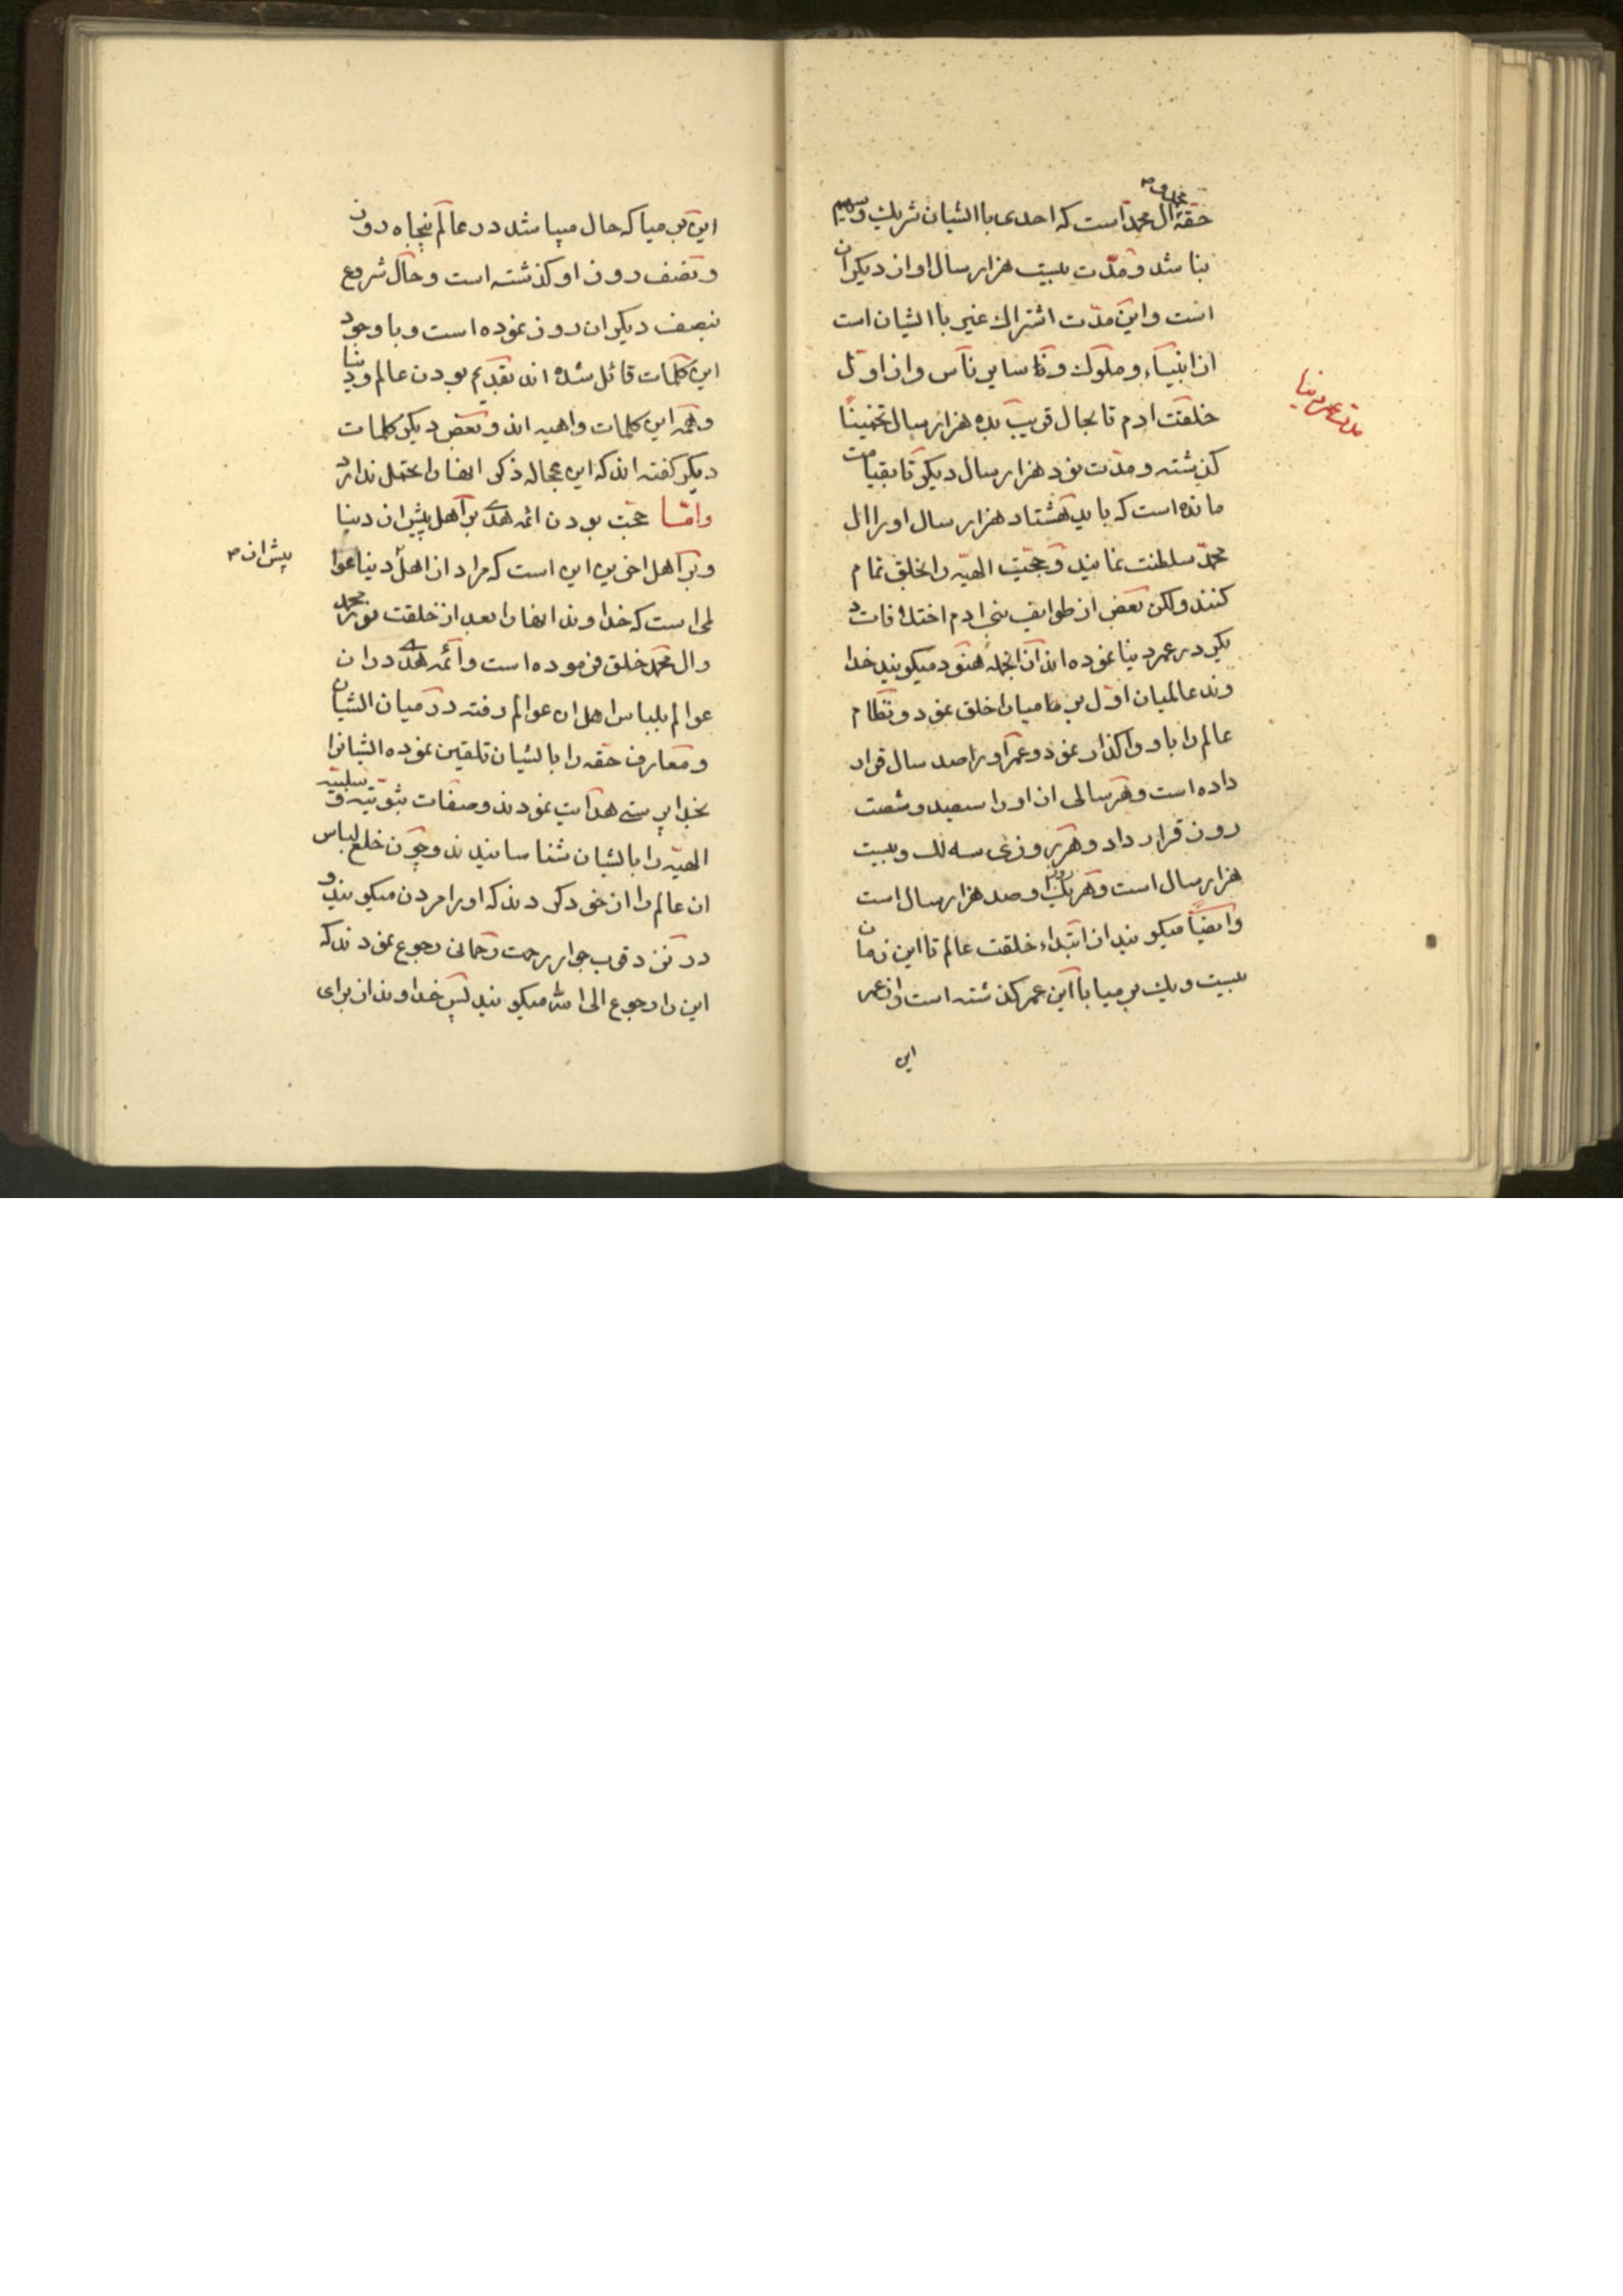 حقه محمد و آل محمد است که احدی با ایشان شریک و سهیم
نباشد و مدت بیست هزار سال او از دیکران
است و این مدت اشتراک غیر با ایشان است
از انبیاء و ملوک و تا سایر ناس و از اول
خلقت ادم تا بحال قریب بده هزار سال تخمیناً
کذشته و مدت نود هزار سال دیکر تا بقیامت
مانده است که باید هشتاد هزار سال او را ال
محمد سلطنت نمایند و حجیت الهیه را بخلق تمام
کنند ولکن بعض از طوایف بنی ادم اختلافات د
یکر در عمر دنیا نموده اند از انجمله هنود میکویند خدا
وند عالمیان اول برمامیان را خلق نمود و نظام
عالم را باو واکذار نمود و عمر او را صد سال قرار
داده است و هر سالی از او را سیصد و شصت
روز قرار داد و هر روزی سه لک و بیست
هزار سال است و هر یک لک او صد هزار سال است
وایضاً میکویند از ابتداء خلقت عالم تا این زمان
بیست و یک برمیا با این عمر کذشته است و از عمر
این
مدت عمر دنیا
این برمیا که حال میباشد در عالم پنجاه روز
و نصف روز او کذشته است و حال شروع
بنصف دیکر ان روز نموده است و با وجود
این کلمات قائل شده اند بقدیم بودن عالم و دنیا
و همه این کلمات واهیه اند و بعض دیکر کلمات
دیکر کفته اند که این عجاله ذکر انها را تحمل ندارد
واما حجت بودن ائمه هدی بر اهل پیش از دنیا
و بر اهل اخرین این است که مراد از اهل دنیا عوا
لمی است که خداوند انها را بعد از خلقت نور محمد
وال محمد خلق فرموده است و ائمه هدی در ان
عوالم بلباس اهل ان عوالم رفته در میان ایشان
و معارف حقه را بایشان تلقین نموده ایشانرا
بخدا پرستی هدایت نمودند و صفات ثبوتیه و سلبیه
الهیه را بایشان شناسانیدند و چون خلع لباس
ان عالم را از خود کردند که او را مردن میکویند و
در نزد قرب جوار رحمت رحمانی رجوع نمودند که
این را رجوع الی الله میکویند پس خداوند از برای
پیش از